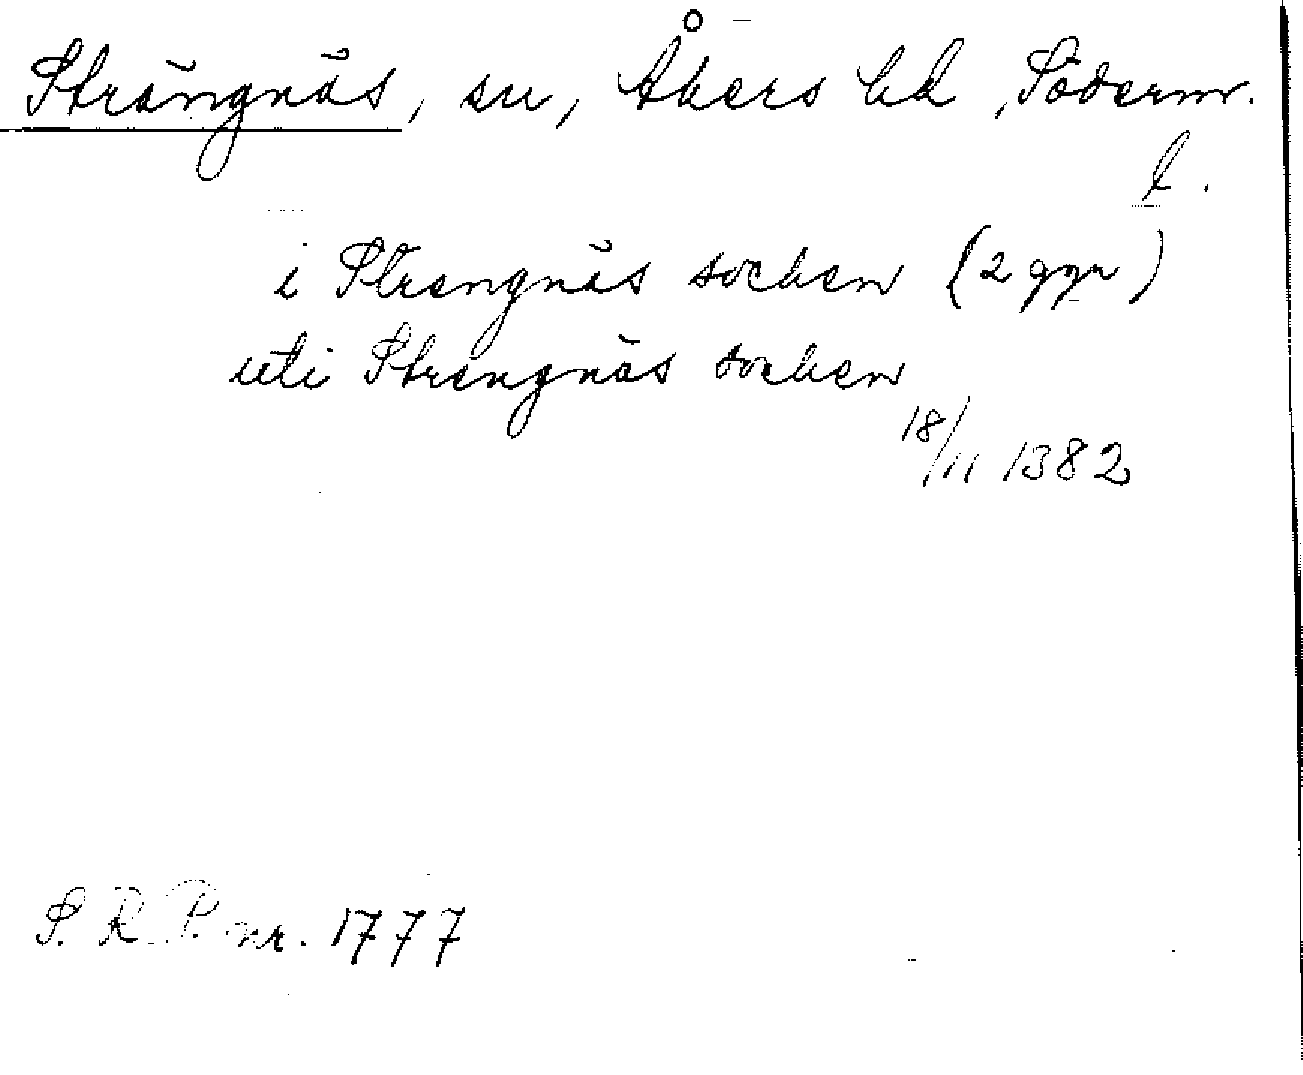 Strängnäs, sn, Åkers hd, Söderm.
l.
i Strengnäs sochen (2 ggr)
uti Strengnäs sochen
18/11 1382
S. R. P. nr. 1777